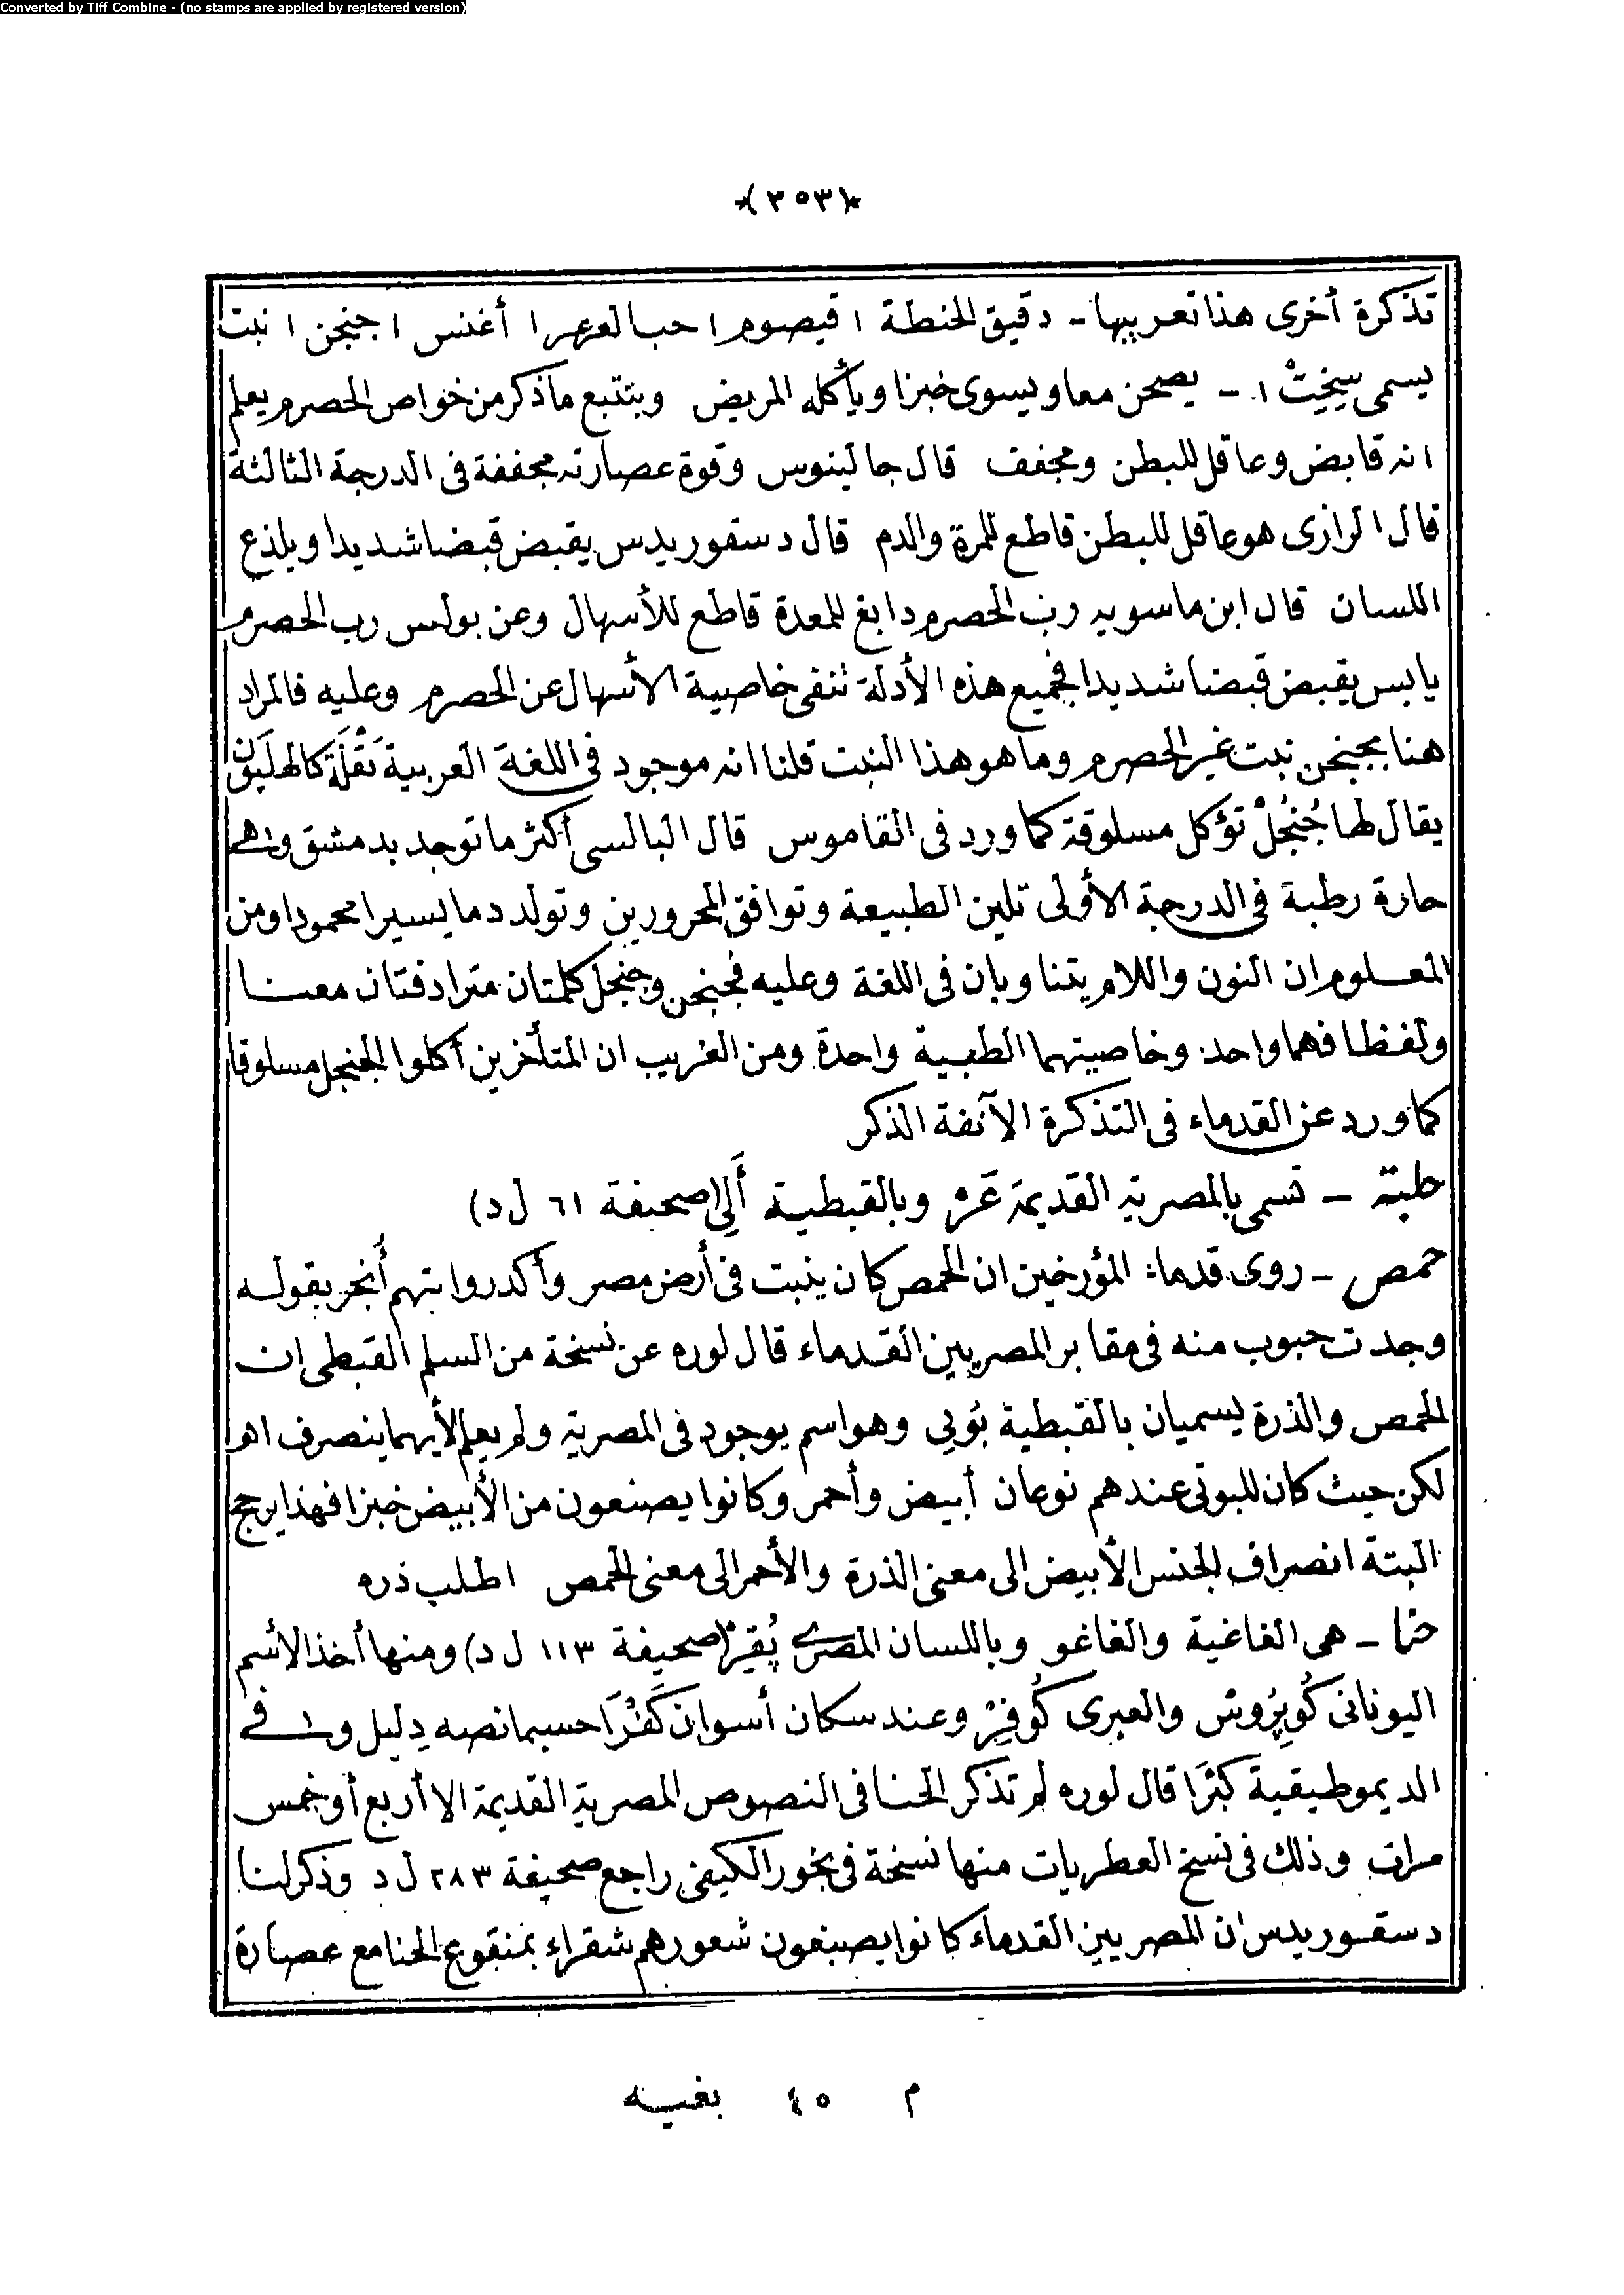 Converted by Tiff Combine - (no stamps are applied by registered version)
*(٣٥٣)*
تذكرة أخرى هذا تعريبها - دقيق الحنطة ١ قيصوم ١ حب العرعر ١ أغنس ١ جنجن ١ نبت
يسمى سِخِتْ ١ - يصحن معا ويسوى خبزا ويأكله المريض وبتتبع ماذكر من خواص الحصرم يعلم
انه قابض وعاقل للبطن ومجفف قال جالينوس وقوة عصارته مجففة فى الدرجة الثالثة
قال الرازى هو عاقل للبطن قاطع للمرة والدم قال دسقوريدس يقبض قبضا شديدا ويلذع
اللسان قال ابن ماسويه رب الحصرم دابغ للمعدة قاطع للأسهال وعن بولس رب الحصرم
يابس يقبض قبضا شديدا فجميع هذه الأدلة تنفى خاصية الأسهال عن الحصرم وعليه فالمراد
هنا بجنجن نبت غير الحصرم وما هو هذا النبت قلنا انه موجود فى اللغة العربية بَقْلَة كالهِليَون
يقال لها جُنْجُلْ تؤكل مسلوقة كما ورد فى القاموس قال البالسى أكثر ما توجد بدمشق وهى
حارة رطبة فى الدرجة الأولى تلين الطبيعة وتوافق المحرورين وتولد دما يسيرا محمودا ومن
المعلوم ان النون واللام يتناوبان فى اللغة وعليه فجنجن وجنجل كلمتان مترادفتان معنا
ولفظا فهما واحد وخاصيتهما الطبية واحدة ومن الغريب ان المتأخرين أكلوا الجنجل مسلوقا
كما ورد عن القدماء فى التذكرة الآنفة الذكر
حلبة - تسمى بالمصرية القديمة وبالقبطية (صحيفة ٦١ ل د)
حمص - روى قدماء المؤرخين ان الحمص كان ينبت فى أرض مصر وأكد روايتهم أُنجر بقوله
وجدت حبوب منه فى مقابر المصريين القدماء قال لوره عن نسخة من السلم القبطى ان
الحمص والذرة يسميان بالقبطية بُوتِى وهو اسم يوجود فى المصرية ولم يعلم لأيهما ينصرف اهو
لكن حيث كان للبوتى عندهم نوعان أبيض وأحمر وكانوا يصنعون من الأبيض خبزا فهذا يرجح
البتة انصراف الجنس الأبيض الى معنى الذرة والأحمر الى معنى الحمص اطلب ذره
حنا - هى الفاغية والفاغو وباللسان المصرى پُقِرْ (صحيفة ١١٣ ل د) ومنها أخذ الاسم
اليونانى كُوپِرُوسْ والعبرى كُوفِرْ وعند سكان أسوان كَفْرَا حسبما نصه دِليل وفى
الديموطيقية كثرَا قال لوره لم تذكر الحنا فى النصوص المصرية القديمة الا أربع أو خمس
مرات وذلك فى نسخ العطريات منها نسخة فى بخور الكيفى راجع صحيفة ٢٨٣ ل د وذكر لنا
دسقوريدس ان المصريين القدماء كانوا يصبغون شعورهم شقراء بمنقوع الحنا مع عصارة
م ٤٥ بغيه